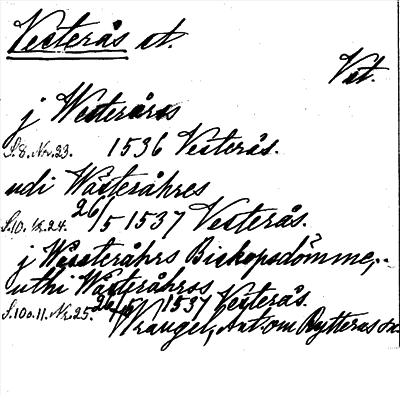 Vesterås st.
Vst.
j Westeårss
S. 8. Nr. 23. 1536 Vesterås.
udi Wåsteråhres
S. 10. Nr. 24. 26/5 1537 Vesterås.
j Wåssteråhrs Biskopsdömme,
uthi Wåsteråhrss
S. 10 o. 11. Nr. 25. 26/5 1537 Vesterås.
Wrangel, Ant. om Rytterns sn